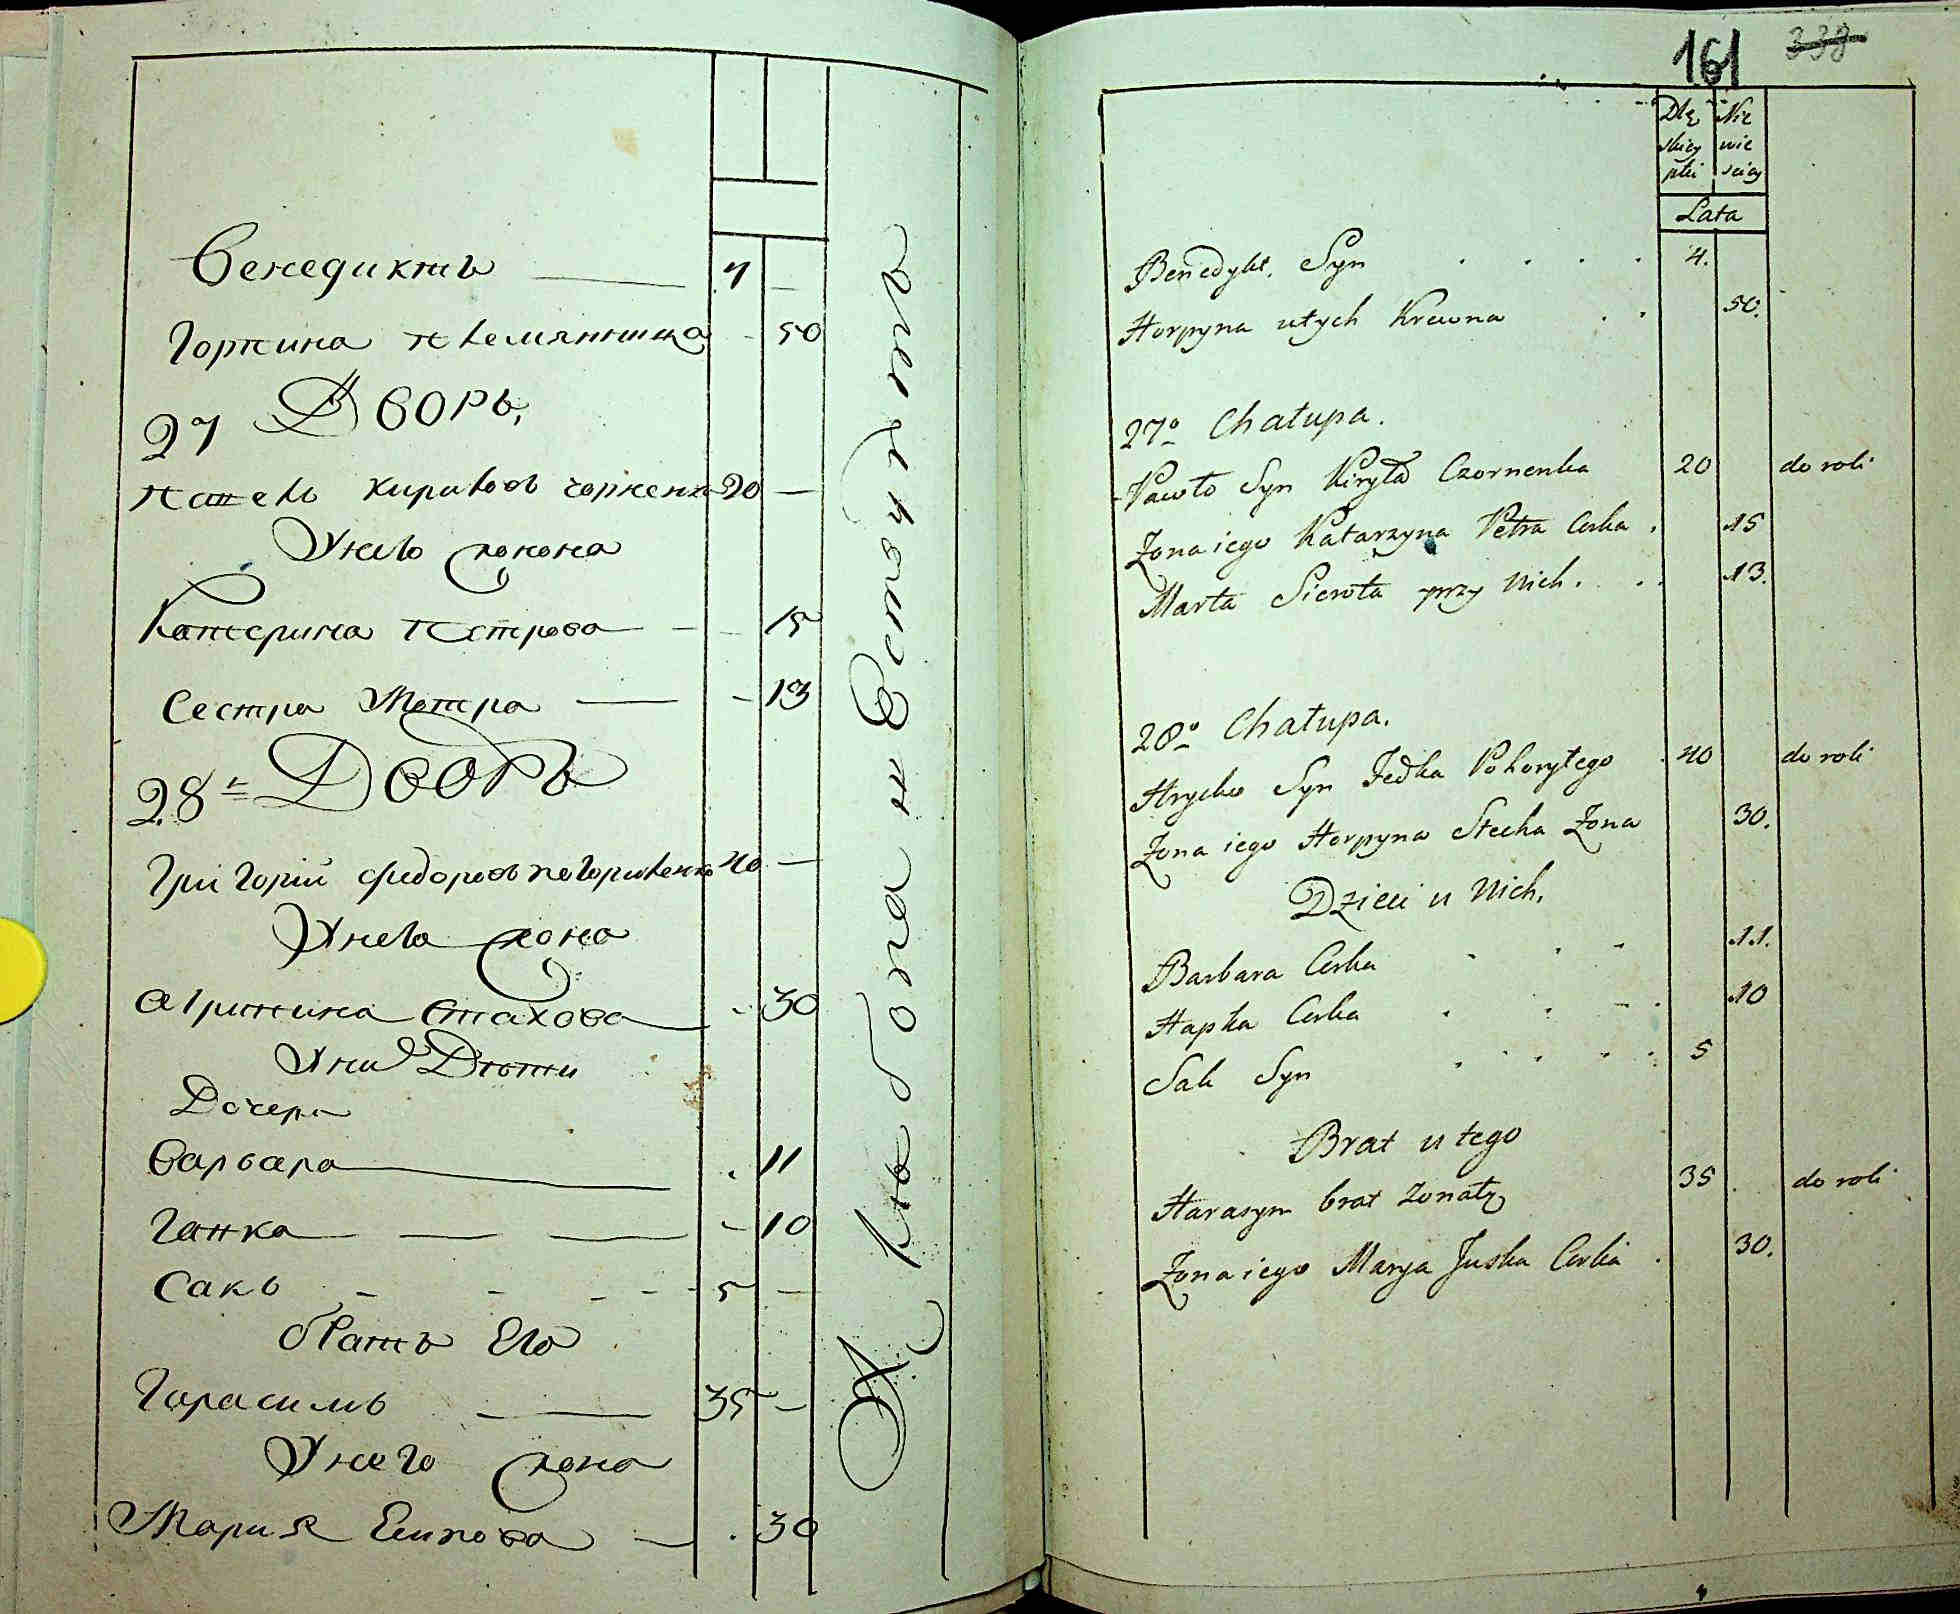 Бенедиктъ — 4 —
Горпина племянница - 50
27 Дворъ,
павелъ кириловъ чорненко 20 —
Унего жонона
Катерина петрова — - 15
Сестра Мотра — - 13
28й Дворъ
Григорий федоровъ погориленко 40 —
Унего жона
Агрипина Стахова - 30
Уних Дѣти
Дочери
Варвара . 11
Ганка — — — - 10
Сакъ - - - - - 5 —
братъ Его
Герасимъ — 35 —
Унего жона
Мария Есипова — . 30
161 338
Płci męskiey Nie wie sciey
Lata
Benedykt. Syn . . . . 4.
Horpyna utych Krewna . . 50.
27o Chałupa.
Pawło Syn Kiryła Czornenka 20 do roli
Zona iego Katarzyna Petra Corka . 15
Marta Sierota przy Nich. . . 13.
28o Chałupa.
Hrycko Syn Fedka Pohoryłego . 40 do roli
Zona iego Horpyna Stecka Zona 30.
Dzieci u Nich,
Barbara Corka . . - 11.
Hapka Corka . . - . 10
Sak Syn . . . . . 5
Brat u tego
Harasym brat zonaty 35 . do roli
Zona iego Marya Juska Corka . 30.